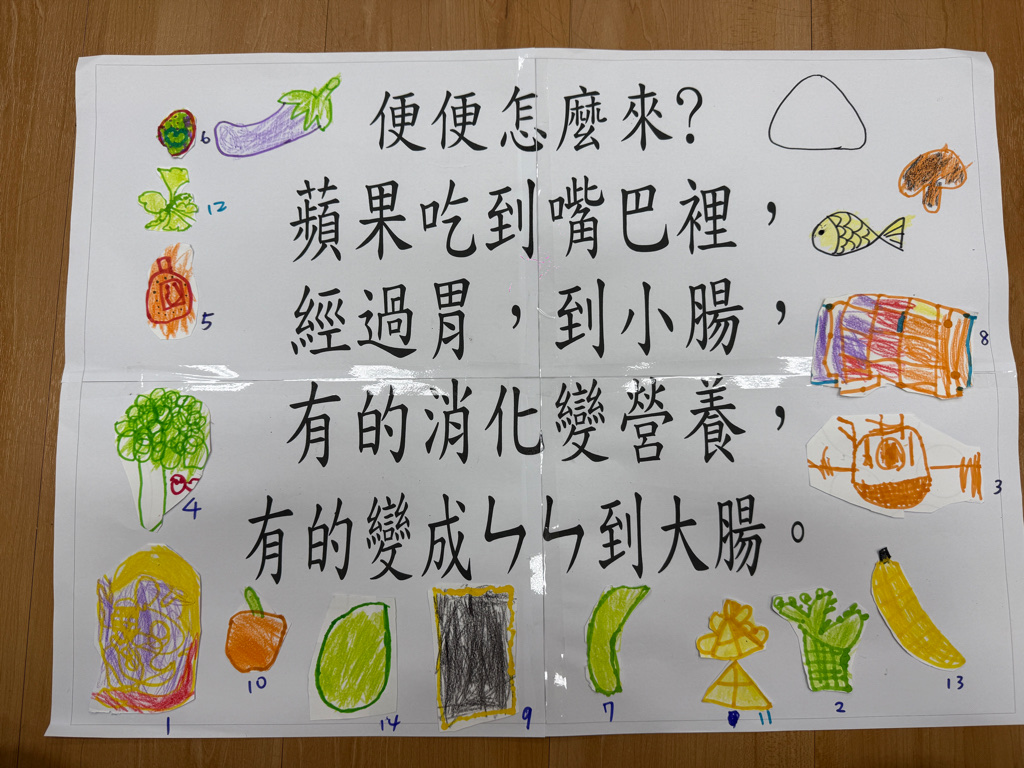 便便怎麼來?
蘋果吃到嘴巴裡，
經過胃，到小腸，
有的消化變營養，
有的變成ㄣㄣ到大腸。
6
12
5
8
4
3
1
10
14
9
7
11
2
13